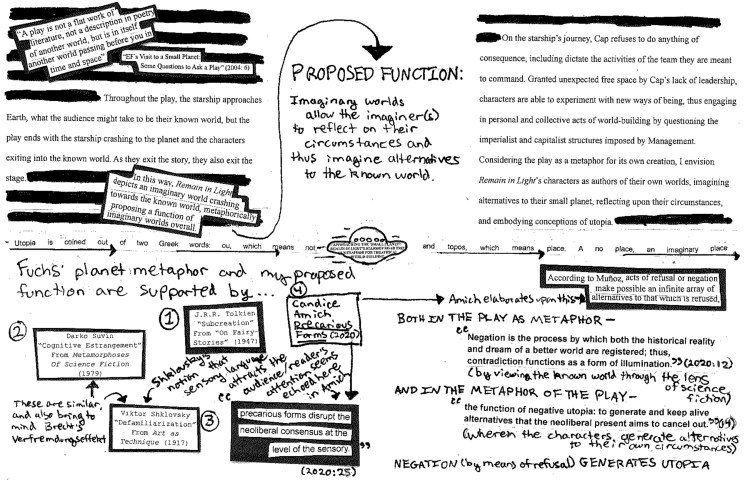 "A play is not a flat work of
literature, not a description in poetry
of another world, but is in itself
another world passing before you in
time and space"
"EF's Visit to a Small Planet:
Some Questions to Ask a Play" (2004: 6)
Throughout the play, the starship approaches
Earth, what the audience might take to be their known world, but the
play ends with the starship crashing to the planet and the characters
exiting into the known world. As they exit the story, they also exit the
stage.
In this way, Remain in Light
depicts an imaginary world crashing
towards the known world, metaphorically
proposing a function of
imaginary worlds overall.
PROPOSED FUNCTION:
Imaginary worlds
allow the imaginer(s)
to reflect on their
circumstances and
thus imagine alternatives
to the known world.
On the starship's journey, Cap refuses to do anything of
consequence, including dictate the activities of the team they are meant
to command. Granted unexpected free space by Cap's lack of leadership,
characters are able to experiment with new ways of being, thus engaging
in personal and collective acts of world-building by questioning the
imperialist and capitalist structures imposed by Management.
Considering the play as a metaphor for its own creation, I envision
Remain in Light's characters as authors of their own worlds, imagining
alternatives to their small planet, reflecting upon their circumstances,
and embodying conceptions of utopia.
Utopia is coined out of two Greek words: ou, which means not and topos, which means place. A no place, an imaginary place
Fuchs' planet metaphor and my proposed
function are supported by...
①
J.R.R. Tolkien
"Subcreation"
From "On Fairy-
Stories" (1947)
②
Darko Suvin
"Cognitive Estrangement"
From Metamorphoses
Of Science Fiction
(1979)
These are similar,
and also bring to
mind Brecht's
Verfremdungseffekt
Viktor Shklovsky
"Defamiliarization"
From Art as
Technique (1917)
③
Shklovsky's
notion that
sensory language
attracts the
audience/reader's
attention seems
echoed here
in Amich
④
Candice
Amich
Precarious
Forms (2020)
"precarious forms disrupt the
neoliberal consensus at the
level of the sensory."
(2020:25)
According to Muñoz, acts of refusal or negation
make possible an infinite array of
alternatives to that which is refused.
Amich elaborates upon this
BOTH IN THE PLAY AS METAPHOR—
"Negation is the process by which both the historical reality
and dream of a better world are registered; thus,
contradiction functions as a form of illumination." (2020:12)
(by viewing the known world through the lens
of science
fiction)
AND IN THE METAPHOR OF THE PLAY—
"the function of negative utopia: to generate and keep alive
alternatives that the neoliberal present aims to cancel out."
(wherein the characters generate alternatives
to their own circumstances)
NEGATION (by means of refusal) GENERATES UTOPIA